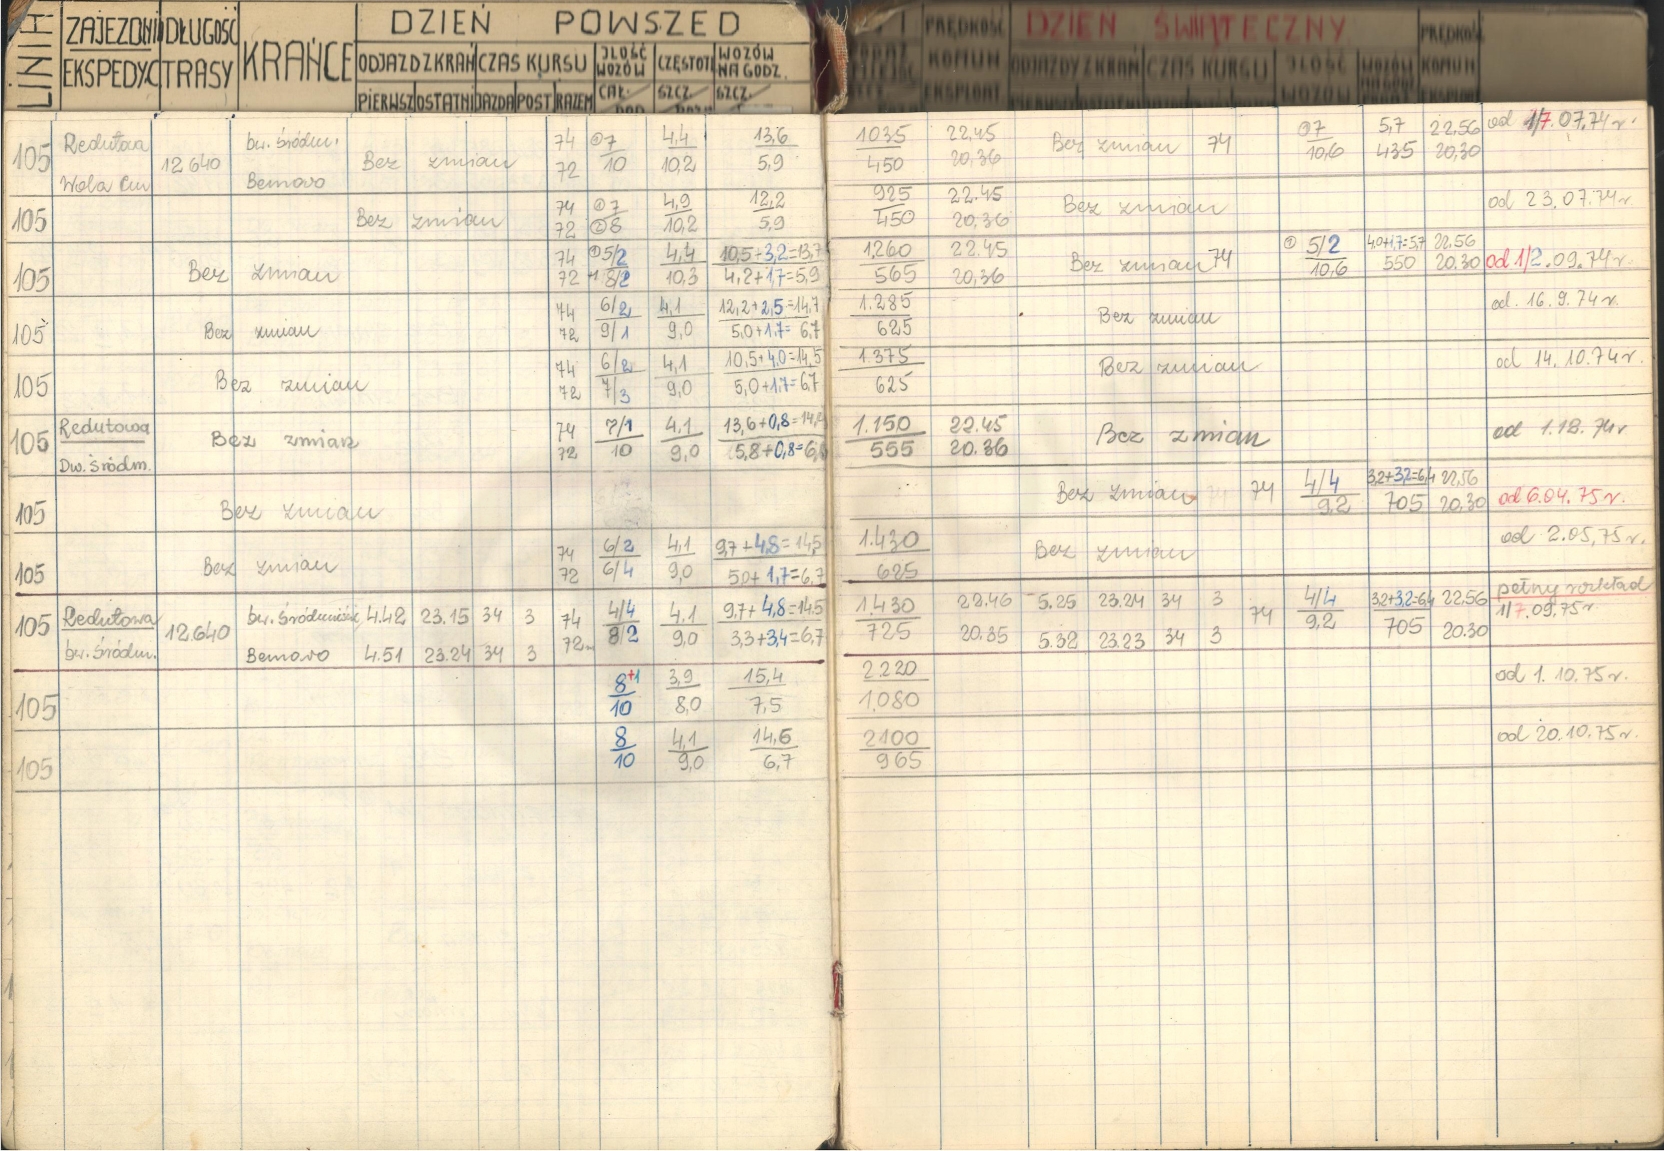 LINIA ZAJEZDNI DŁUGOŚĆ KRAŃCE DZIEŃ POWSZED DZIEŃ ŚWIĄTECZNY
EKSPEDYC TRASY ODJAZD Z KRAŃ CZAS KURSU ILOŚĆ WOZÓW CZĘSTOTL WOZÓW NA GODZ. PRĘDKOŚĆ KOMUN EKSPLOAT ODJAZDY Z KRAŃ CZAS KURSU ILOŚĆ WOZÓW WOZÓW NA GODZ PRĘDKOŚ KOMUN EKSPLOAT
PIERWSZ OSTATNI JAZDA POST RAZEM CAŁ. SZCZ. SZCZ.
105 Redutowa 12640 bw. śródm. Bez zmian 74 ①7 4,4 13,6 1035 22.45 Bez zmian 74 ①7 5,7 22,56 od 1/7.07.74 r.
Wola Cm Bemowo 72 10 10,2 5,9 450 20,36 10,6 435 20,30
105 Bez zmian 74 ①7 4,9 12,2 925 22.45 Bez zmian od 23.07.74 r.
72 ②8 10,2 5,9 450 20,36
105 Bez zmian 74 ①5/2 4,4 10,5+3,2=13,7 1,260 22.45 Bez zmian 74 ① 5/2 4,0+1,7=5,7 22.56 od 1/2.09.74 r.
72 8/2 10,3 4,2+1,7=5,9 565 20,36 10,6 550 20.30
105 Bez zmian 74 6/2 4,1 12,2+2,5=14,7 1.285 Bez zmian od. 16.9.74 r.
72 9/1 9,0 5,0+1,7=6,7 625
105 Bez zmian 74 6/2 4,1 10,5+4,0=14,5 1.375 Bez zmian od 14.10.74 r.
72 7/3 9,0 5,0+1,7=6,7 625
105 Redutowa Bez zmian 74 7/1 4.1 13,6+0,8=14,4 1.150 22.45 Bez zmian od 1.12.74 r
Dw. śródm. 72 10 9,0 5,8+0,8=6,6 555 20.36
105 Bez zmian Bez zmian 74 4/4 3,2+3,2=6,4 22,56 od 6.04.75 r.
9,2 705 20,30
105 Bez zmian 74 6/2 4,1 9,7+4,8=14,5 1.430 Bez zmian od 2.05.75 r.
72 6/4 9,0 5,0+1,7=6,7 625
105 Redutowa 12640 bw. Śródmieście 4.42 23.15 34 3 74 4/4 4.1 9,7+4,8=14,5 1.430 22.46 5.25 23.24 34 3 74 4/4 3,2+3,2=6,4 22,56 pełny rozkład
bw. Śródm. Bemowo 4.51 23.24 34 3 72 8/2 9,0 3,3+3,4=6,7 725 20.35 5.32 23.23 34 3 9,2 705 20.30 1/7.09.75 r
105 8+1 3,9 15,4 2.220 od 1.10.75 r.
10 8,0 7,5 1,080
105 8 4,1 14,6 2100 od 20.10.75 r.
10 9,0 6,7 965